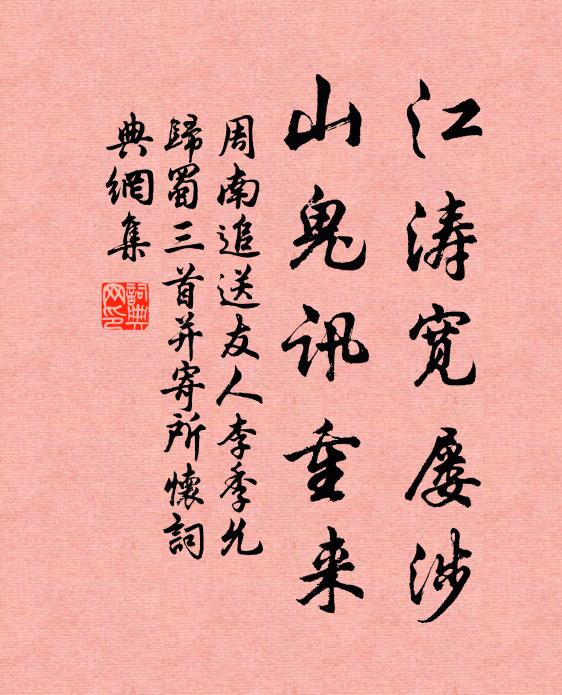 江涛寬屡涉
山鬼訊重来
周南追送友人李季允
歸蜀三首并寄所懷詞
典網集
詞典网印